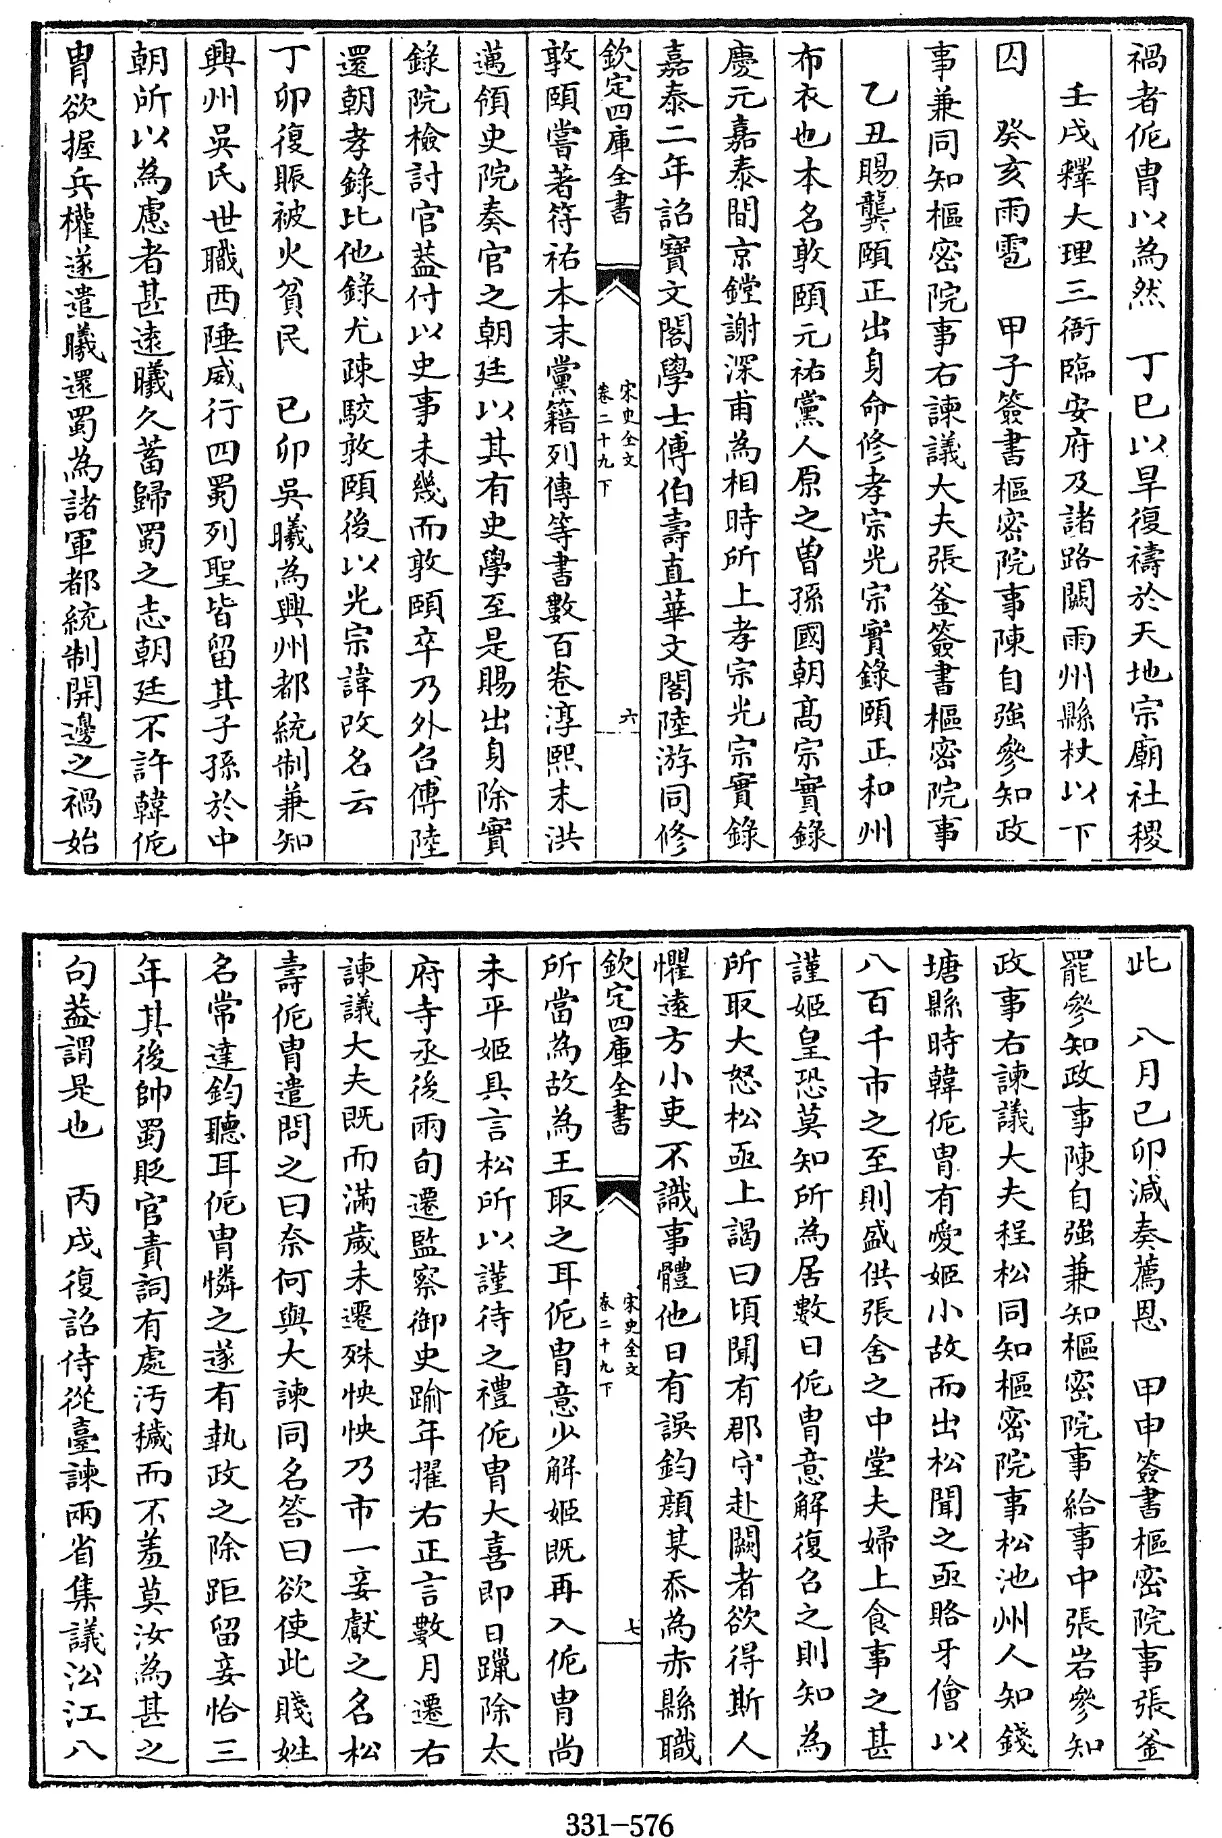 禍者侂胄以為然　丁巳以旱復禱於天地宗廟社稷
壬戌釋大理三衙臨安府及諸路闕雨州縣杖以下
囚　癸亥雨雹　甲子簽書樞密院事陳自強參知政
事兼同知樞密院事右諫議大夫張釜簽書樞密院事
乙丑賜龔頤正出身命修孝宗光宗實錄頤正和州
布衣也本名敦頤元祐黨人原之曾孫國朝髙宗實錄
慶元嘉泰間京鏜謝深甫為相時所上孝宗光宗實錄
嘉泰二年詔寶文閣學士傅伯壽直華文閣陸游同修
欽定四庫全書
宋史全文
卷二十九下
六
敦頤嘗著符祐本末黨籍列傳等書數百卷淳熙末洪
邁領史院奏官之朝廷以其有史學至是賜出身除實
錄院檢討官葢付以史事未幾而敦頤卒乃外召傅陸
還朝孝錄比他錄尤疎駮敦頤後以光宗諱改名云
丁卯復賑被火貧民　已卯吳曦為興州都統制兼知
興州吳氏世職西陲威行四蜀列聖皆留其子孫於中
朝所以為慮者甚遠曦久蓄歸蜀之志朝廷不許韓侂
胄欲握兵權遂遣曦還蜀為諸軍都統制開邊之禍始
此　八月己卯減奏薦恩　甲申簽書樞密院事張釜
罷參知政事陳自強兼知樞密院事給事中張岩參知
政事右諫議大夫程松同知樞密院事松池州人知錢
塘縣時韓侂胄有愛姬小故而出松聞之亟賂牙儈以
八百千市之至則盛供張舍之中堂夫婦上食事之甚
謹姬皇恐莫知所為居數日侂胄意解復召之則知為
所取大怒松亟上謁曰頃聞有郡守赴闕者欲得斯人
懼遠方小吏不識事體他日有誤鈞顔某忝為赤縣職
欽定四庫全書
宋史全文
卷二十九下
七
所當為故為王取之耳侂胄意少解姬既再入侂胄尚
未平姬具言松所以謹待之禮侂胄大喜即日躐除太
府寺丞後兩旬遷監察御史踰年擢右正言數月遷右
諫議大夫既而滿歲未遷殊怏怏乃市一妾獻之名松
壽侂胄遣問之曰奈何與大諫同名答曰欲使此賤姓
名常達鈞聽耳侂胄憐之遂有執政之除距留妾恰三
年其後帥蜀貶官責詞有處汚穢而不羞莫汝為甚之
句葢謂是也　丙戌復詔侍從臺諫兩省集議㳂江八
331-576